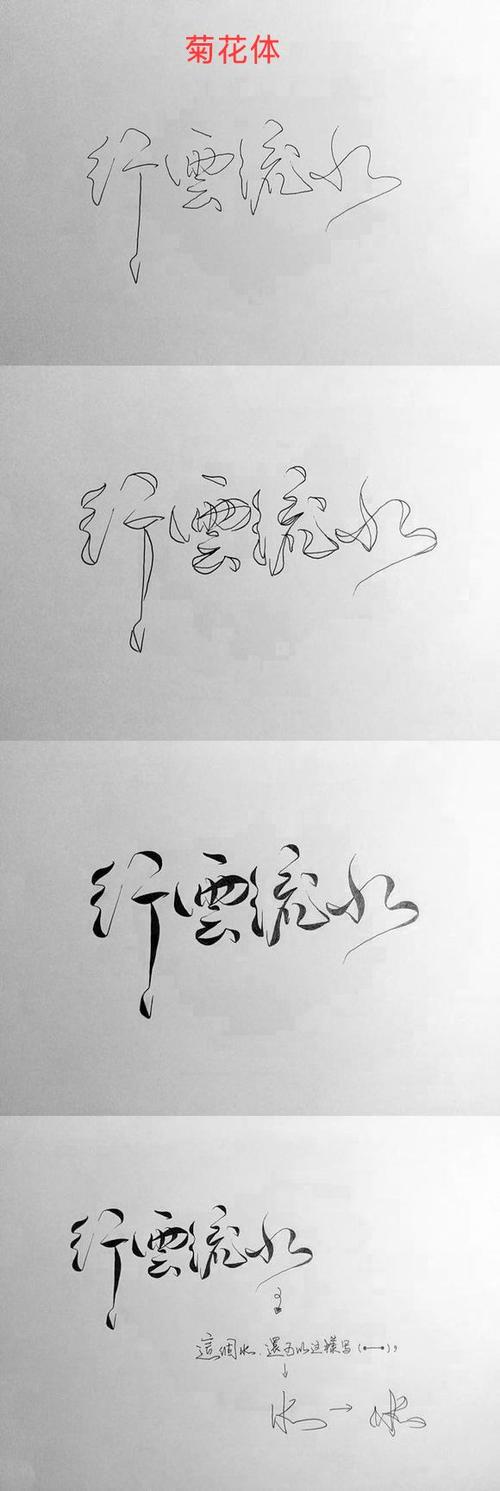 菊花体
行雲流水
行雲流水
行雲流水
行雲流水
這個水,還可以这樣写(●—●),
↓
水→水